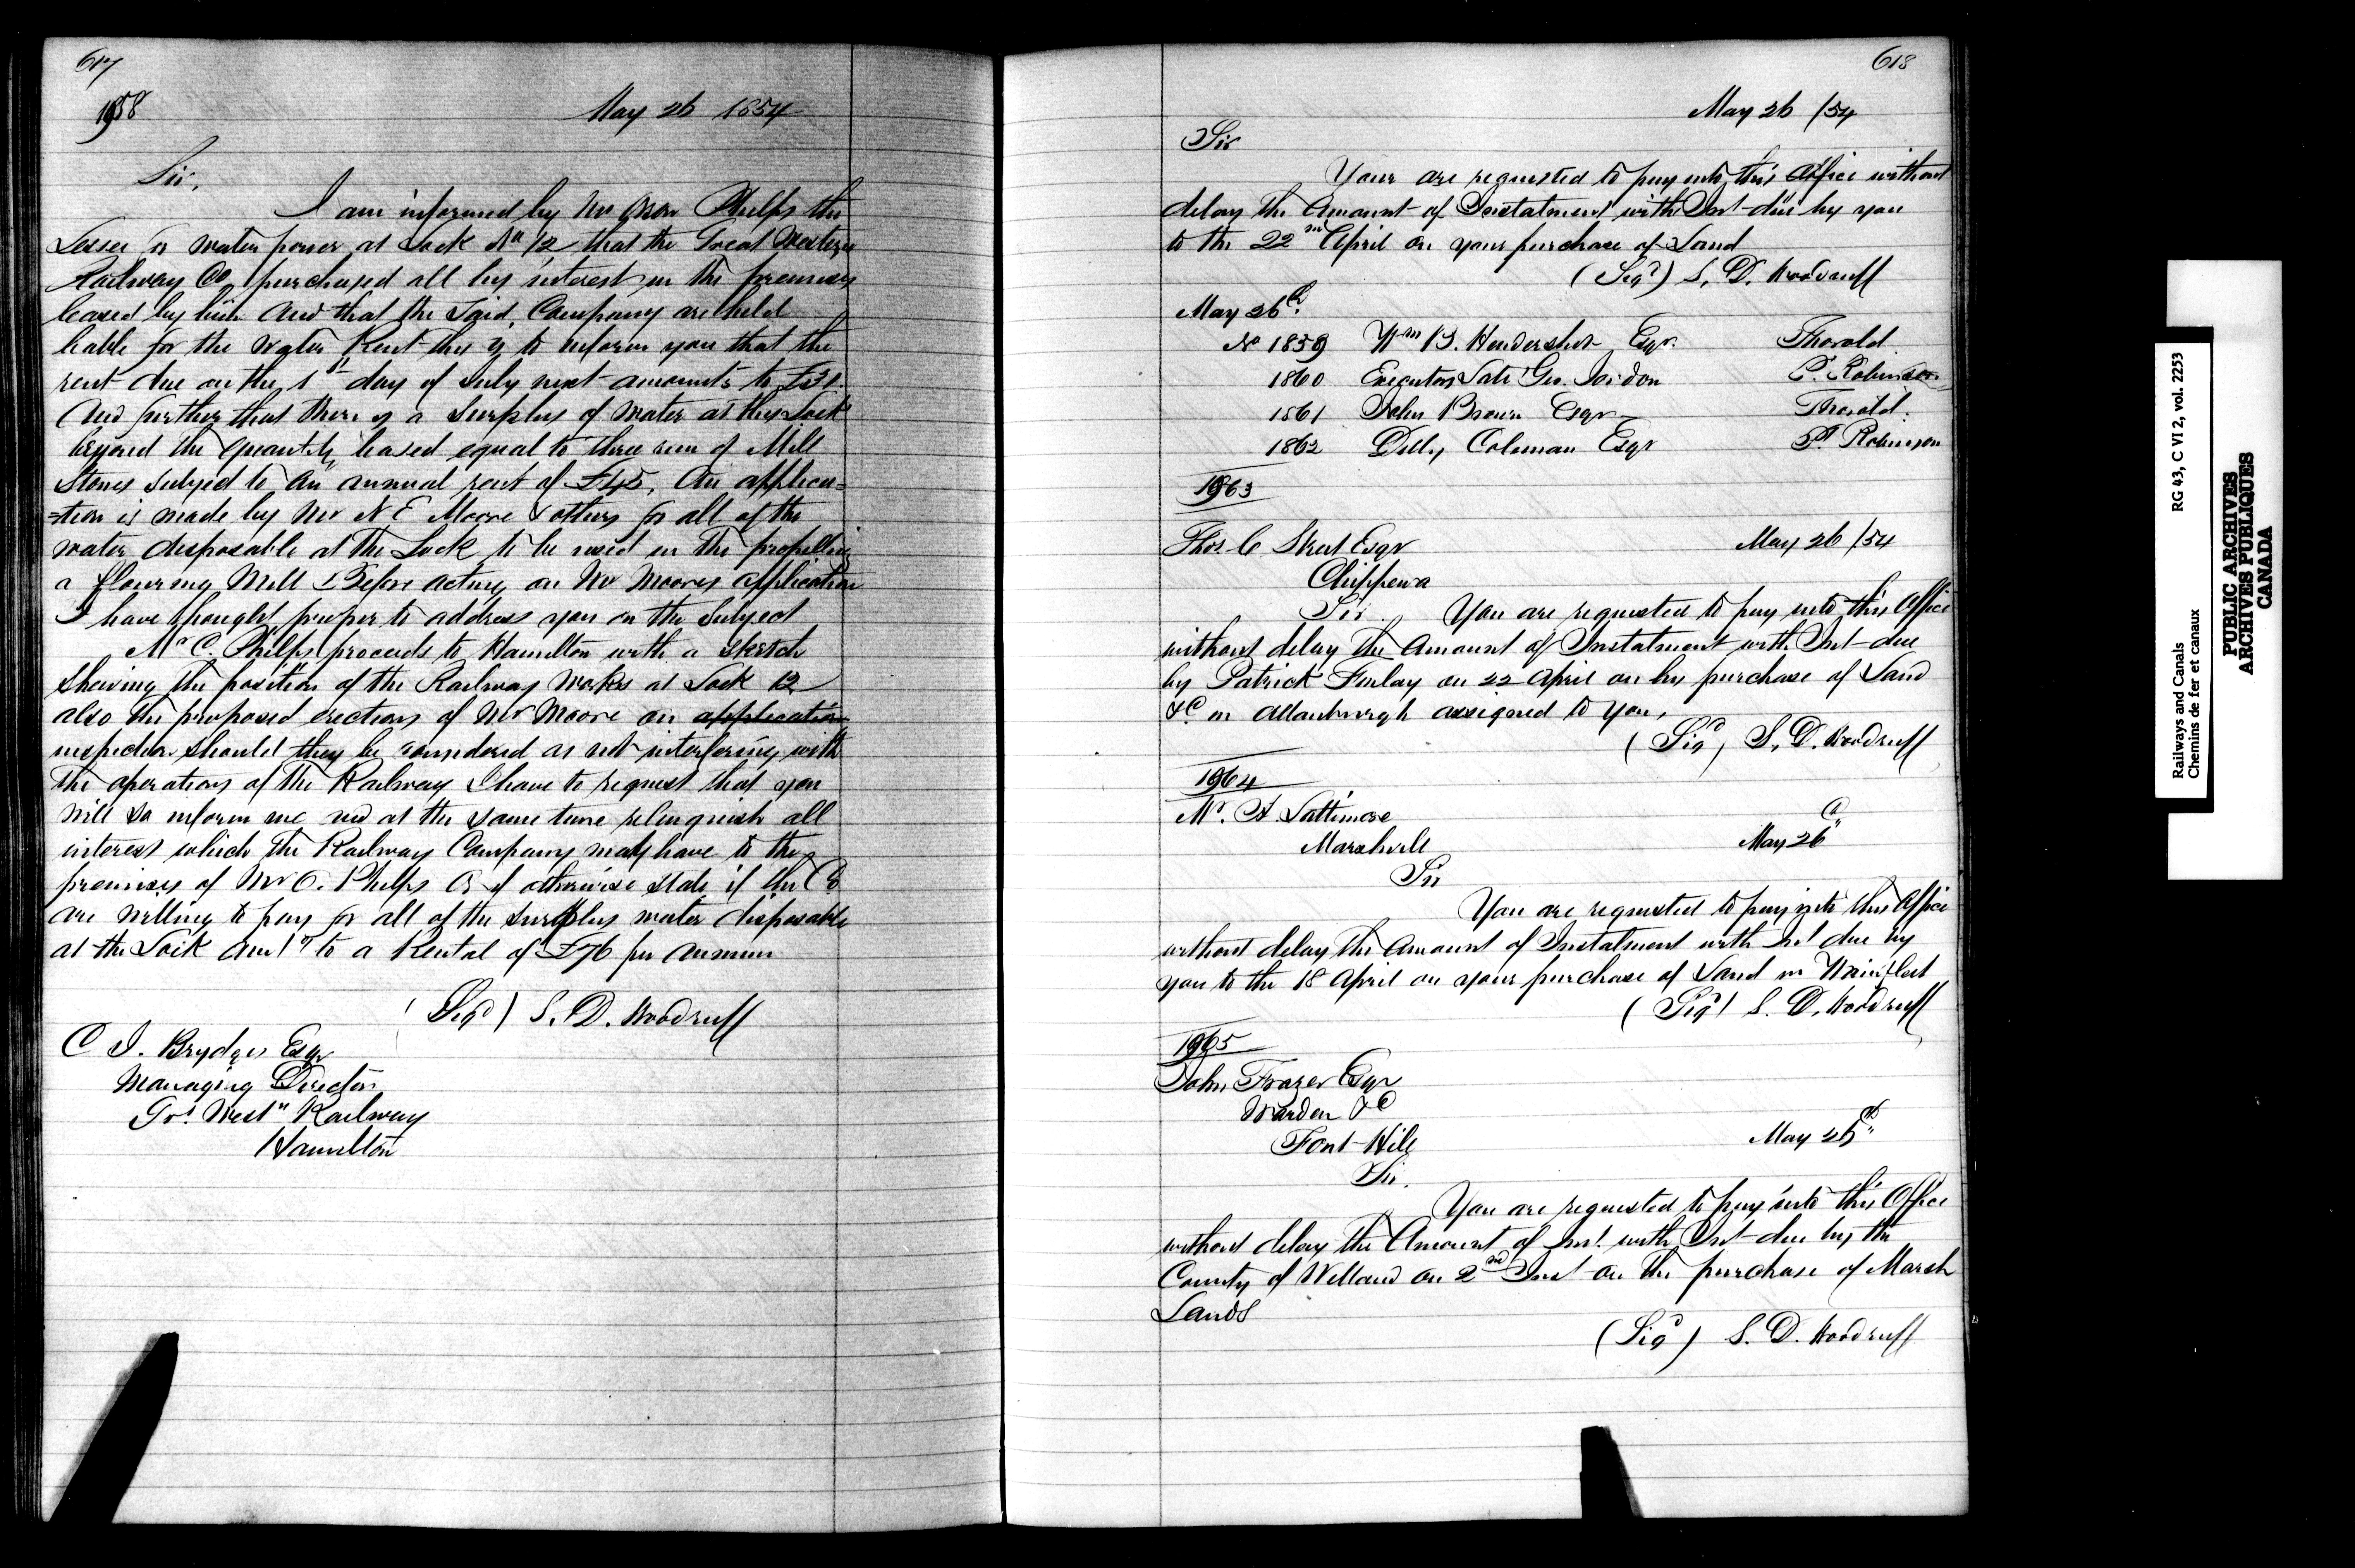 617
1958
May 26 1854
Sir,
I am informed by Mr Oron Phelps the
Lessee for water power at Lock No 12 that the Great Western
Railway Co purchased all his interest in the premises
leased by him and that the said Company are held
liable for the Water Rent this is to inform you that the
rent due on the 1st day of July next amounts to £31.
And further that there is a surplus of water at this Lock
beyond the quantity leased equal to three run of Mill
Stones subject to an annual rent of £45. An applica=
=tion is made by Mr N E Moore & others for all of the
water disposable at the Lock to be used in the propelling
a flouring Mill Before acting on Mr Moores application
I have thought proper to address you on the subject
Mr O. Phelps proceeds to Hamilton with a sketch
shewing the position of the Railway Works at Lock 12
also the proposed erections of Mr Moore on application
inspection should they be considered as not interfering with
the operations of the Railway I have to request that you
will so inform me and at the same time relinquish all
interest which the Railway Company may have to the
premises of Mr O. Phelps Or if otherwise state if the Co
are willing to pay for all of the surplus water disposable
at the Lock amtg to a Rental of £76 per annum
(Sigd) S. D. Woodruff
C J. Brydges Esqr
Managing Director
Grt Westn Railway
Hamilton
618
May 26 /54
Sir
Your are requested to pay into this Office without
delay the Amount of Instalment with Int due by you
to the 22nd April on your purchase of Land
(Sigd) S. D. Woodruff
May 26th
No 1859 Wm B. Hendershot Esqr. Thorold
1860 Executors Late Geo. Jordon P. Robinson
1861 John Brown Esqr Thorold.
1862 Dilly Coleman Esqr Pt Robinson
1963
Thos C Street Esqr May 26 /54
Chippewa
Sir. You are requested to pay into this Office
without delay the Amount of Instalment with Int due
by Patrick Finlay on 22 April on his purchase of Land
&c in Allanburgh assigned to you,
(Sigd) S. D. Woodruff
1964
Mr. A Lattimore
Marshville May 26th
Sir
You are requested to pay into this Office
without delay the Amount of Instalment with Int due by
you to the 18 April on your purchase of Land in Wainfleet
(Sigd) S. D. Woodruff
1965
John Frazer Esqr
Warden &c
Font Hill May 26th
Sir.
You are requested to pay into this Office
without delay the Amount of Inst. with Int due by the
County of Welland on 2nd Inst on the purchase of Marsh
Lands
(Sigd) S. D. Woodruff
Railways and Canals RG 43, C VI 2, vol. 2253
Chemins de fer et canaux
PUBLIC ARCHIVES
ARCHIVES PUBLIQUES
CANADA